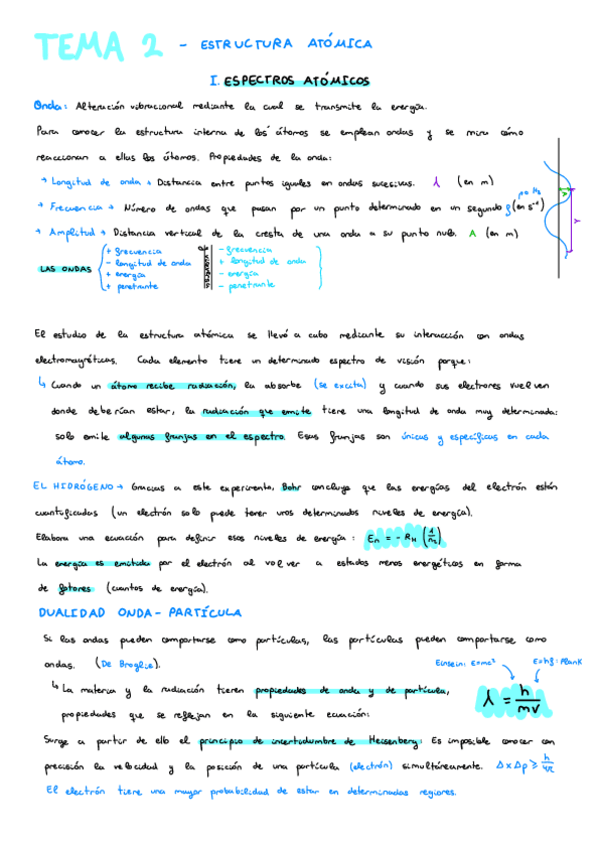 TEMA 2 - ESTRUCTURA ATÓMICA
I. ESPECTROS ATÓMICOS
Onda: Alteración vibracional mediante la cual se transmite la energía.
Para conocer la estructura interna de los átomos se emplean ondas y se mira cómo
reaccionan a ellas los átomos. Propiedades de la onda:
→ Longitud de onda → Distancia entre puntos iguales en ondas sucesivas. λ (en m)
→ Frecuencia → Número de ondas que pasan por un punto determinado en un segundo f (en s⁻¹) → Hz
→ Amplitud → Distancia vertical de la cresta de una onda a su punto nulo. A (en m)
A
λ
LAS ONDAS
+ frecuencia
- longitud de onda
+ energía
+ penetrante
- frecuencia
+ longitud de onda
- energía
- penetrante
El estudio de la estructura atómica se llevó a cabo mediante su interacción con ondas
electromagnéticas. Cada elemento tiene un determinado espectro de visión porque:
↳ Cuando un átomo recibe radiación, la absorbe (se excita) y cuando sus electrones vuelven
donde deberían estar, la radiación que emite tiene una longitud de onda muy determinada:
solo emite algunas franjas en el espectro. Esas franjas son únicas y específicas en cada
átomo.
EL HIDRÓGENO → Gracias a este experimento, Bohr concluye que las energías del electrón están
cuantificadas (un electrón solo puede tener unos determinados niveles de energía).
Elabora una ecuación para definir esos niveles de energía: En = - RH (1/n²)
La energía es emitida por el electrón al volver a estados menos energéticos en forma
de fotones (cuantos de energía).
DUALIDAD ONDA - PARTÍCULA
Si las ondas pueden comportarse como partículas, las partículas pueden comportarse como
ondas. (De Broglie).
Einsein: E=mc² E=hf: Plank
↳ La materia y la radiación tienen propiedades de onda y de partícula,
λ = h/mv
propiedades que se reflejan en la siguiente ecuación:
Surge a partir de ello el principio de incertidumbre de Heissenberg: Es imposible conocer con
precisión la velocidad y la posición de una partícula (electrón) simultáneamente. Δx Δp ≥ h/4π
El electrón tiene una mayor probabilidad de estar en determinadas regiones.